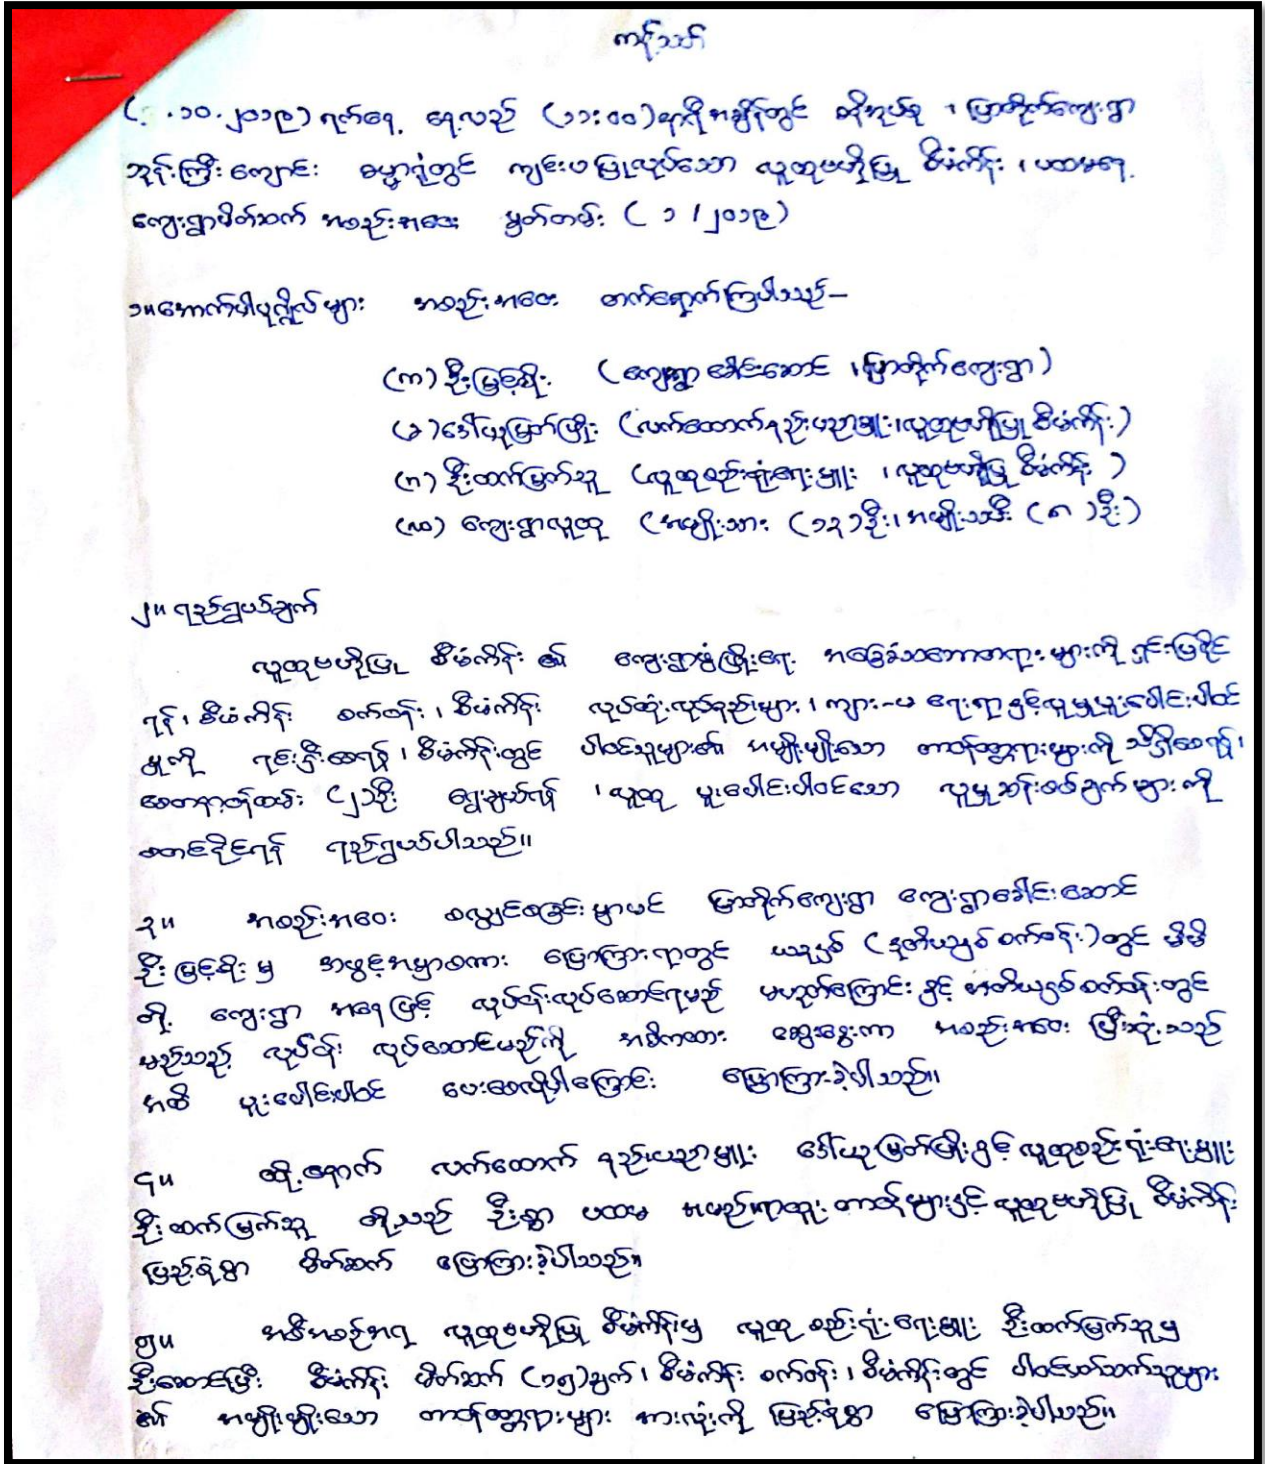 ကန့်သတ်
( . ၁၀ . ၂၀၁၉ ) ရက်နေ့ နေ့လည် (၁၁:၀၀) နာရီအချိန်တွင် ဆိုအုပ်စု ၊ မြာတိုက်ကျေးရွာ
ဘုန်းကြီးကျောင်း ဓမ္မာရုံတွင် ကျင်းပပြုလုပ်သော လူထုဗဟိုပြု စီမံကိန်း ၊ ပထမနေ့
ကျေးရွာမိတ်ဆက် အစည်းအဝေး မှတ်တမ်း ( ၁ / ၂၀၁၉ )
၁။အောက်ပါပုဂ္ဂိုလ်များ အစည်းအဝေး တက်ရောက်ကြပါသည်–
(က) ဦးမြင့်စိုး (ကျေးရွာ ခေါင်းဆောင် ၊ မြာတိုက်ကျေးရွာ)
(ခ) ဒေါ်ယုမြတ်ဖြိုး (လက်ထောက်နည်းပညာမှူး၊လူထုဗဟိုပြု စီမံကိန်း)
(ဂ) ဦးထက်မြက်သူ (လူထုစည်းရုံးရေးမှူး ၊ လူထုဗဟိုပြု စီမံကိန်း )
(ဃ) ကျေးရွာလူထု (အမျိုးသား (၁၃)ဦး၊ အမျိုးသမီး (၈ )ဦး)
၂။ ရည်ရွယ်ချက်
လူထုဗဟိုပြု စီမံကိန်း ၏ ကျေးရွာဖွံ့ဖြိုးရေး အခြေခံသဘောတရားများကို ရှင်းပြနိုင်
ရန် ၊ စီမံကိန်း စက်ဝန်း ၊ စီမံကိန်း လုပ်ထုံးလုပ်နည်းများ ၊ ကျား-မ ရေးရာနှင့်လူမှုပူးပေါင်းပါဝင်
မှုကို ရင်းနှီးစေရန် ၊ စီမံကိန်းတွင် ပါဝင်သူများ၏ အမျိုးမျိုးသော တာဝန်ဝတ္တရားများကို သိရှိစေရန် ၊
စေတနာ့ဝန်ထမ်း (၂)ဦး ရွေးချယ်ရန် ၊ လူထု ပူးပေါင်းပါဝင်သော လူမှုဆန်းစစ်ချက်များကို
စတင်နိုင်ရန် ရည်ရွယ်ပါသည်။
၃။ အစည်းအဝေး စလျှင်စခြင်းမှာပင် မြာတိုက်ကျေးရွာ ကျေးရွာခေါင်းဆောင်
ဦးမြင့်စိုးမှ အဖွင့်အမှာစကား ပြောကြားရာတွင် ယခုနှစ် (ဒုတိယနှစ်စက်ဝန်း) တွင် မိမိ
တို့ ကျေးရွာ အနေဖြင့် လုပ်ငန်းလုပ်ဆောင်ရမည် မဟုတ်ကြောင်း နှင့် တတိယနှစ်စက်ဝန်းတွင်
မည်သည့် လုပ်ငန်း လုပ်ဆောင်မည်ကို အဓိကထား ဆွေးနွေးကာ အစည်းအဝေး ပြီးဆုံးသည်
အထိ ပူးပေါင်းပါဝင် ပေးစေလိုပါကြောင်း ပြောကြားခဲ့ပါသည်။
၄။ ထို့နောက် လက်ထောက် နည်းပညာမှူး ဒေါ်ယုမြတ်ဖြိုးနှင့် လူထုစည်းရုံးရေးမှူး
ဦးထက်မြက်သူ တို့သည် ဦးစွာ ပထမ အမည်ရာထူး တာဝန်များနှင့် လူထုဗဟိုပြု စီမံကိန်း
ပြည့်စုံစွာ မိတ်ဆက် ပြောကြားခဲ့ပါသည်။
၅။ အစီအစဉ်အရ လူထုဗဟိုပြု စီမံကိန်းမှ လူထု စည်းရုံးရေးမှူး ဦးထက်မြက်သူမှ
ဦးဆောင်ပြီး စီမံကိန်း မိတ်ဆက် (၁၅)ချက် ၊ စီမံကိန်း စက်ဝန်း ၊ စီမံကိန်းတွင် ပါဝင်ပတ်သက်သူများ
၏ အမျိုးမျိုးသော တာဝန်ဝတ္တရားများ အားလုံးကို ပြည့်စုံစွာ ပြောကြားခဲ့ပါသည်။